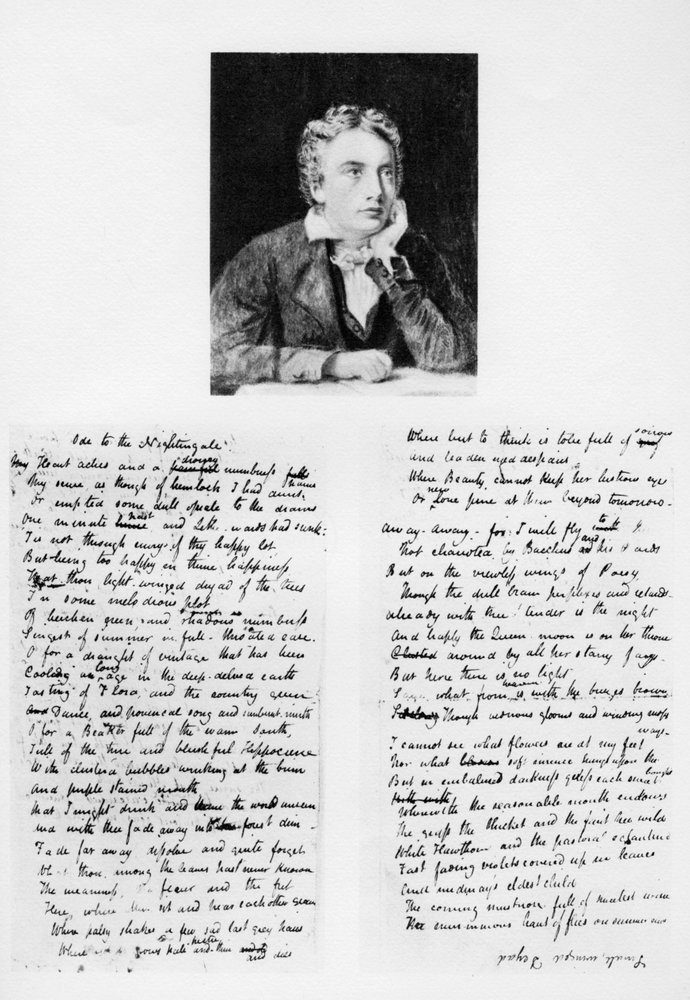 Ode to the Nightingale
My Heart aches and a drowsy numbness pains
My sense as though of hemlock I had drunk
Or emptied some dull opiate to the drains
One minute past and Lethe-wards had sunk:
Tis not through envy of thy happy lot
But being too happy in thine happiness
That thou light-winged dryad of the trees
In some melodious plot
Of beechen green, and shadows numberless
Singest of summer in full-throated ease.
O for a draught of vintage that has been
Cooling an age in the deep-delved earth
Tasting of Flora, and the country green
And Dance, and provencal song and sunburnt mirth
O for a Beaker full of the warm South,
Full of the true and blushful Hippocrene
With cluster'd bubbles winking at the brim
And purple stained mouth
that I might drink and leave the world unseen
And with thee fade away into the forest dim -
Fade far away, dissolve and quite forget
What thou among the leaves hast never known
The weariness, the fever and the fret
Here, where Men sit and hear each other groan
Where palsy shakes a few sad last grey hairs
Where grows pale and thin and dies
Where but to think is to be full of sorrow
and leaden eyed despairs
Where Beauty cannot keep her lustrous eye
Or new love pine at them beyond tomorrow -
Away - away - for I will fly to thee
Not charioted by Bacchus and his Pards
But on the viewless wings of Poesy
Though the dull brain perplexes and retards -
Already with thee! tender is the night
And haply the Queen-moon is on her throne
Clusted around by all her starry fays -
But here there is no light
Save what from heaven is with the breezes blown
Though verdurous glooms and winding mossy
ways -
I cannot see what flowers are at my feet
Nor what soft incense hangs upon the
boughs
But in embalmed darkness guess each sweet
Wherewith the seasonable month endows
The grass the thicket and the fruit tree wild
White Hawthorn and the pastoral eglantine
Fast fading violets covered up in leaves
And midmay's eldest child
The coming muskrose full of sweetest wine
The murmurous haunt of flies on summer eves
Small, winged Dryad